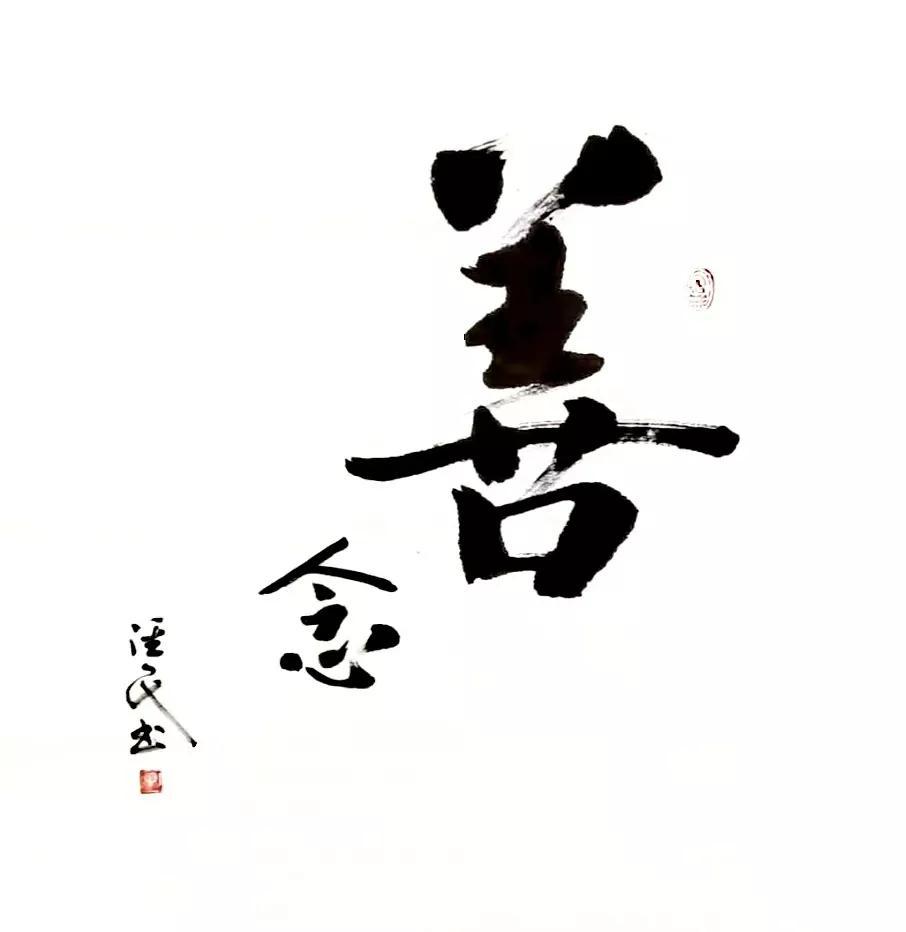 善
念
汪民书